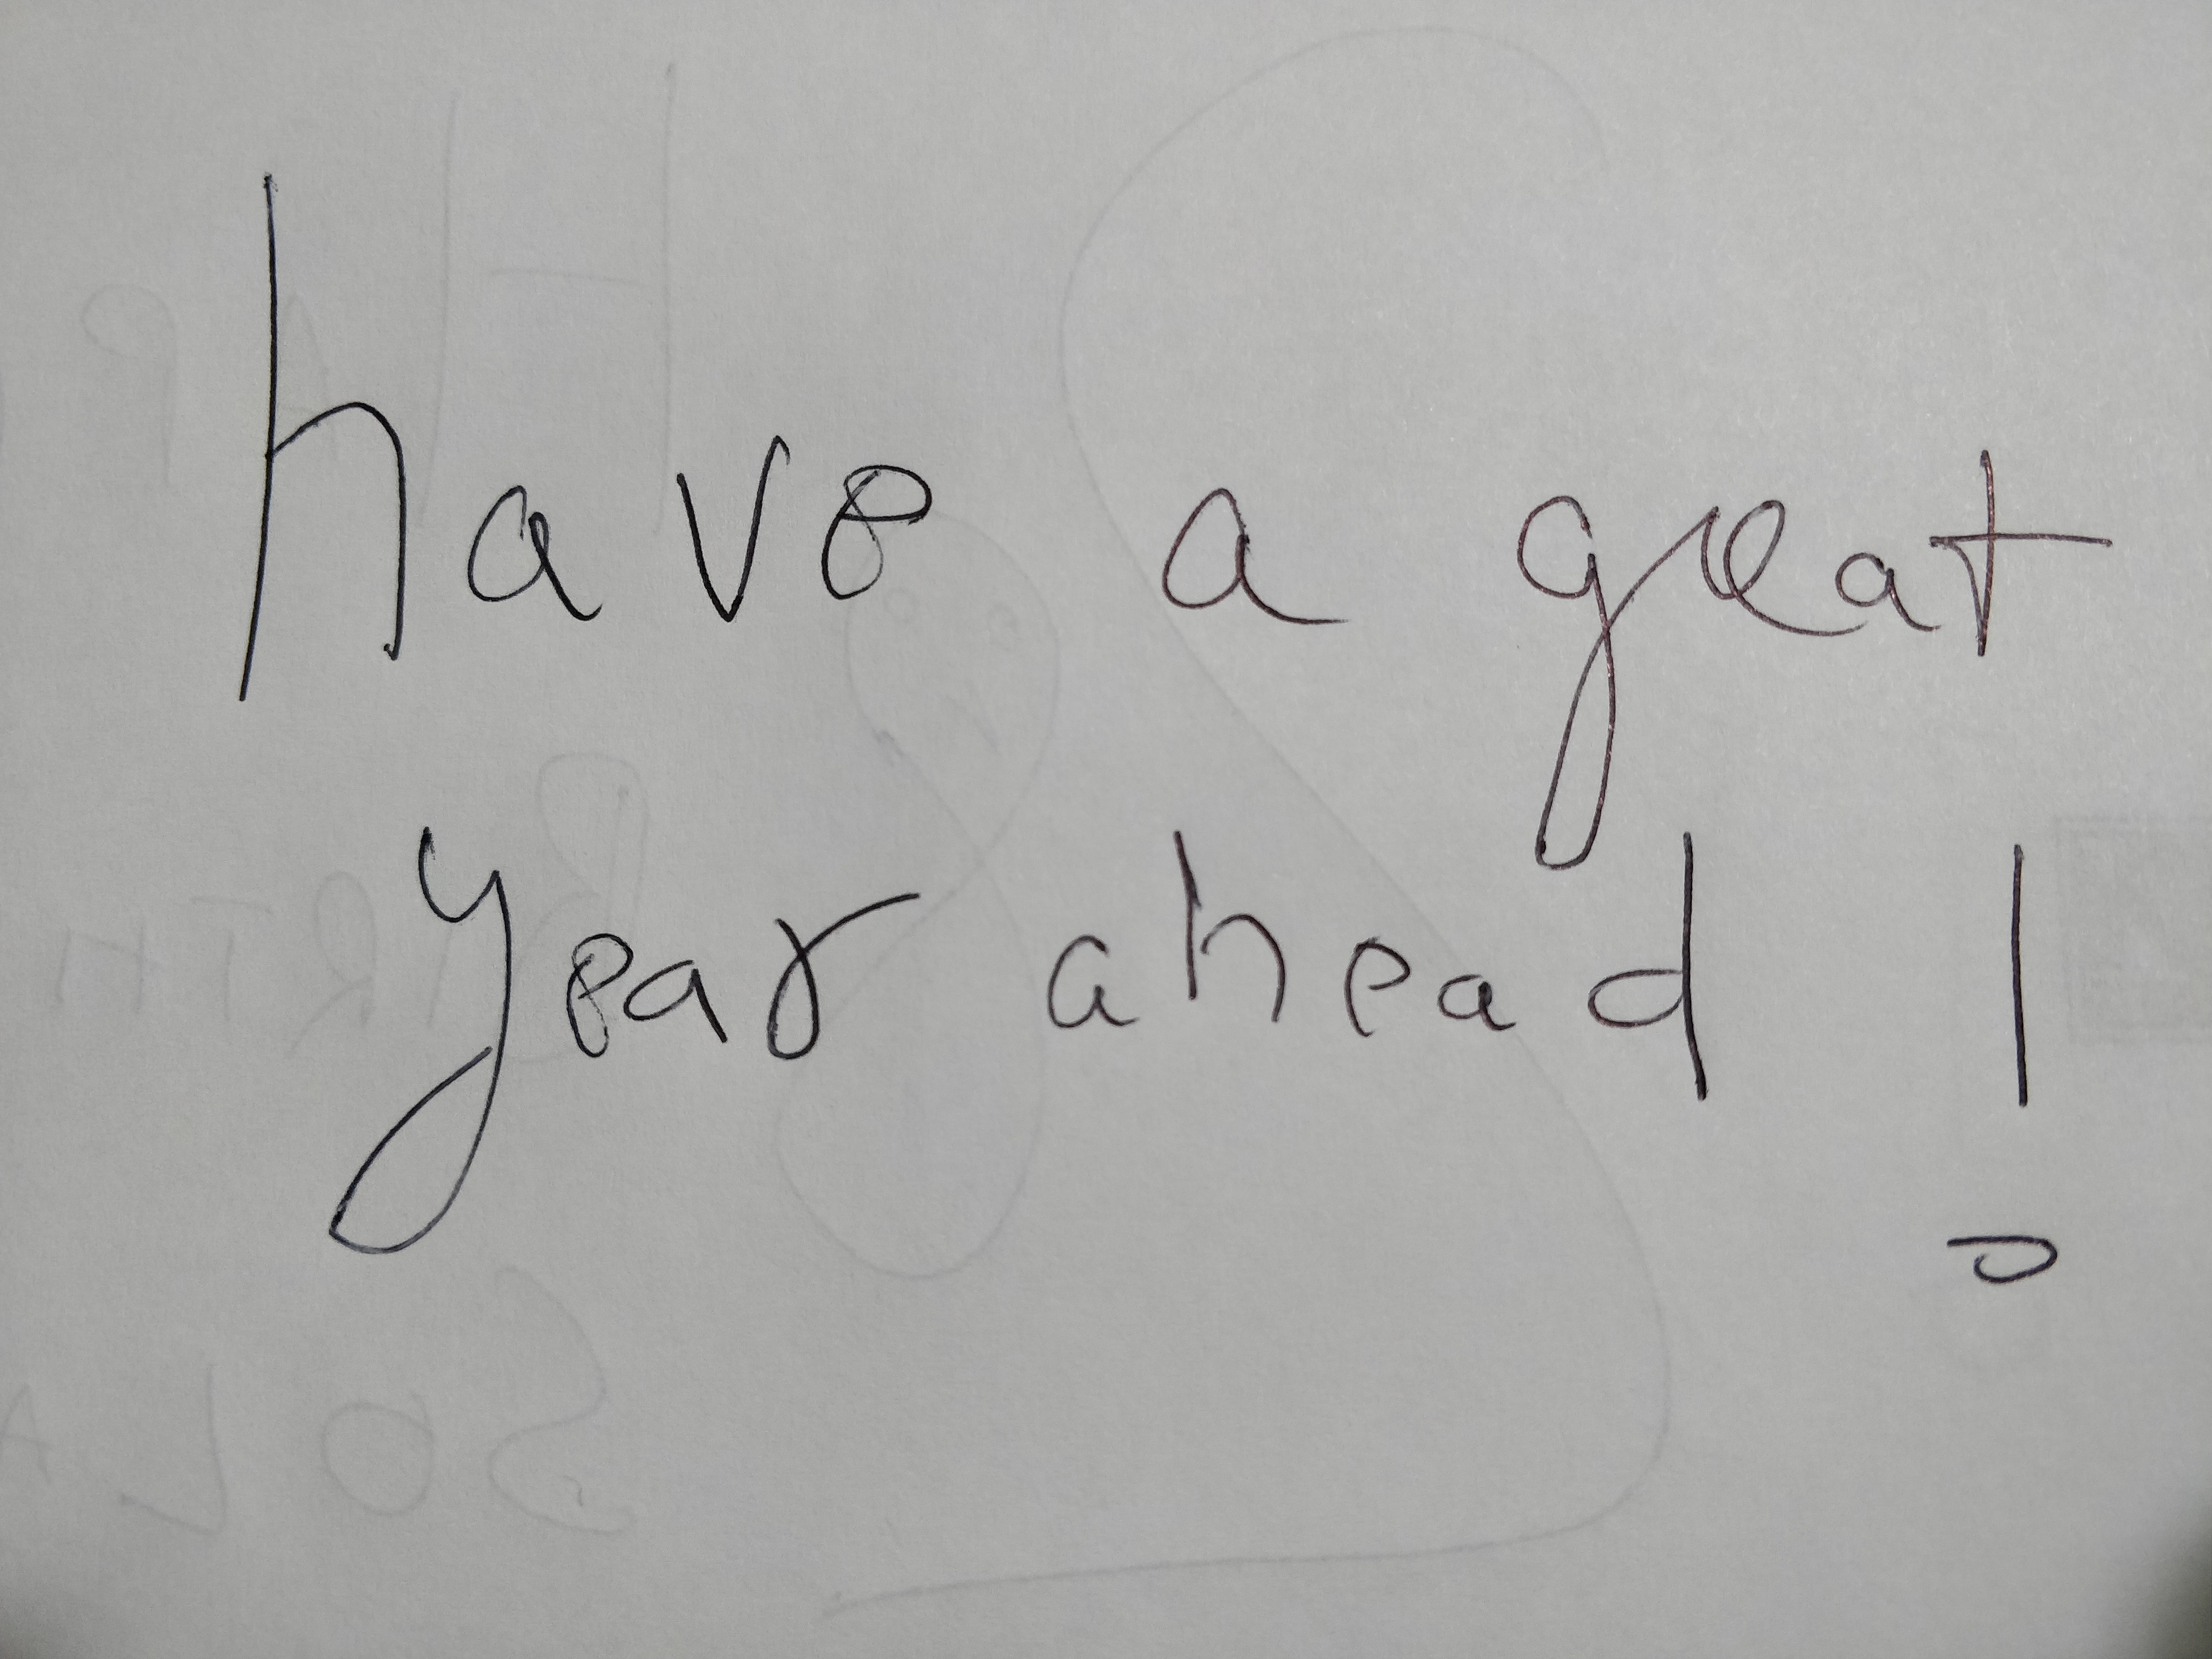 have a great
year ahead !